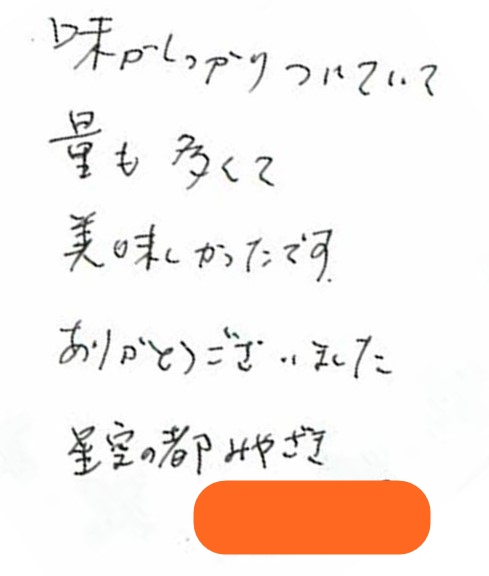 味がしっかりついていて
量も多くて
美味しかったです
ありがとうございました
星空の都みやざき